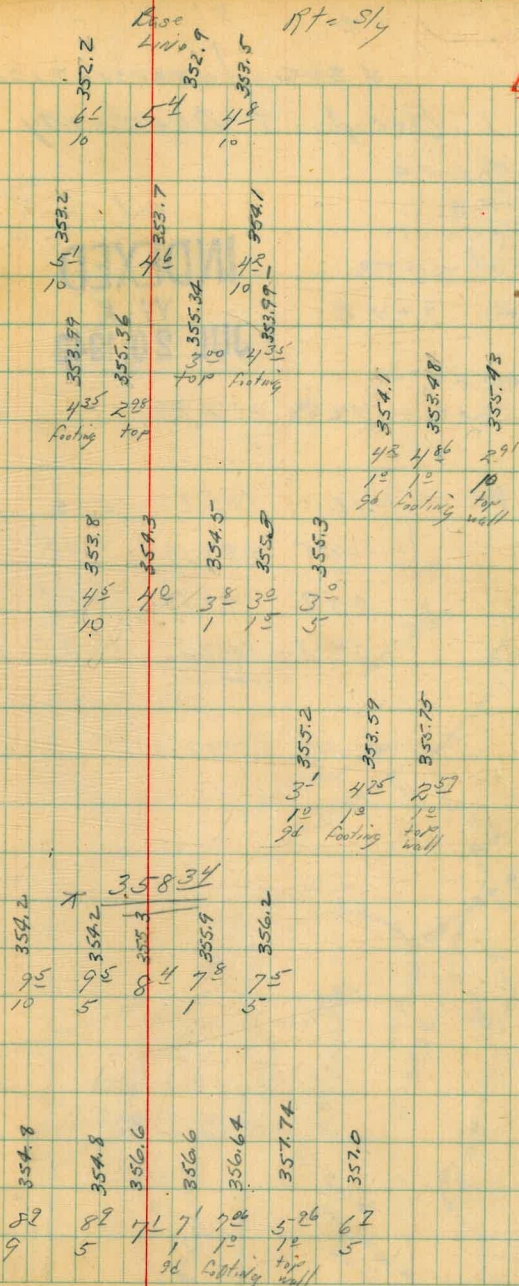 Base Line Rt = S'ly
352.2 352.9 353.5
6.1 5.4 4.8
10 10
353.2 353.7 354.1
5.1 4.6 4.2
10 10
353.99 355.36 355.34 353.99
4.35 2.98 3.00 4.35
footing top top footing
354.1 353.48 355.43
4.2 4.86 2.91
1.0 1.0 10
gd footing top wall
353.8 354.3 354.5 355.3 355.3
4.5 4.0 3.8 3.0 3.0
10 1 1.0 5
355.2 353.59 355.75
3.1 4.75 2.59
1.0 1.0 1.0
gd footing top wall
358.34
354.2 354.2 355.3 355.9 356.2
9.5 9.5 8.4 7.8 7.5
10 5 1 5
354.8 354.8 356.6 356.6 356.64 357.74 357.0
8.9 8.9 7.1 7.1 7.06 5.96 6.7
9 5 1 1.0 1.0 5
gd footing top wall